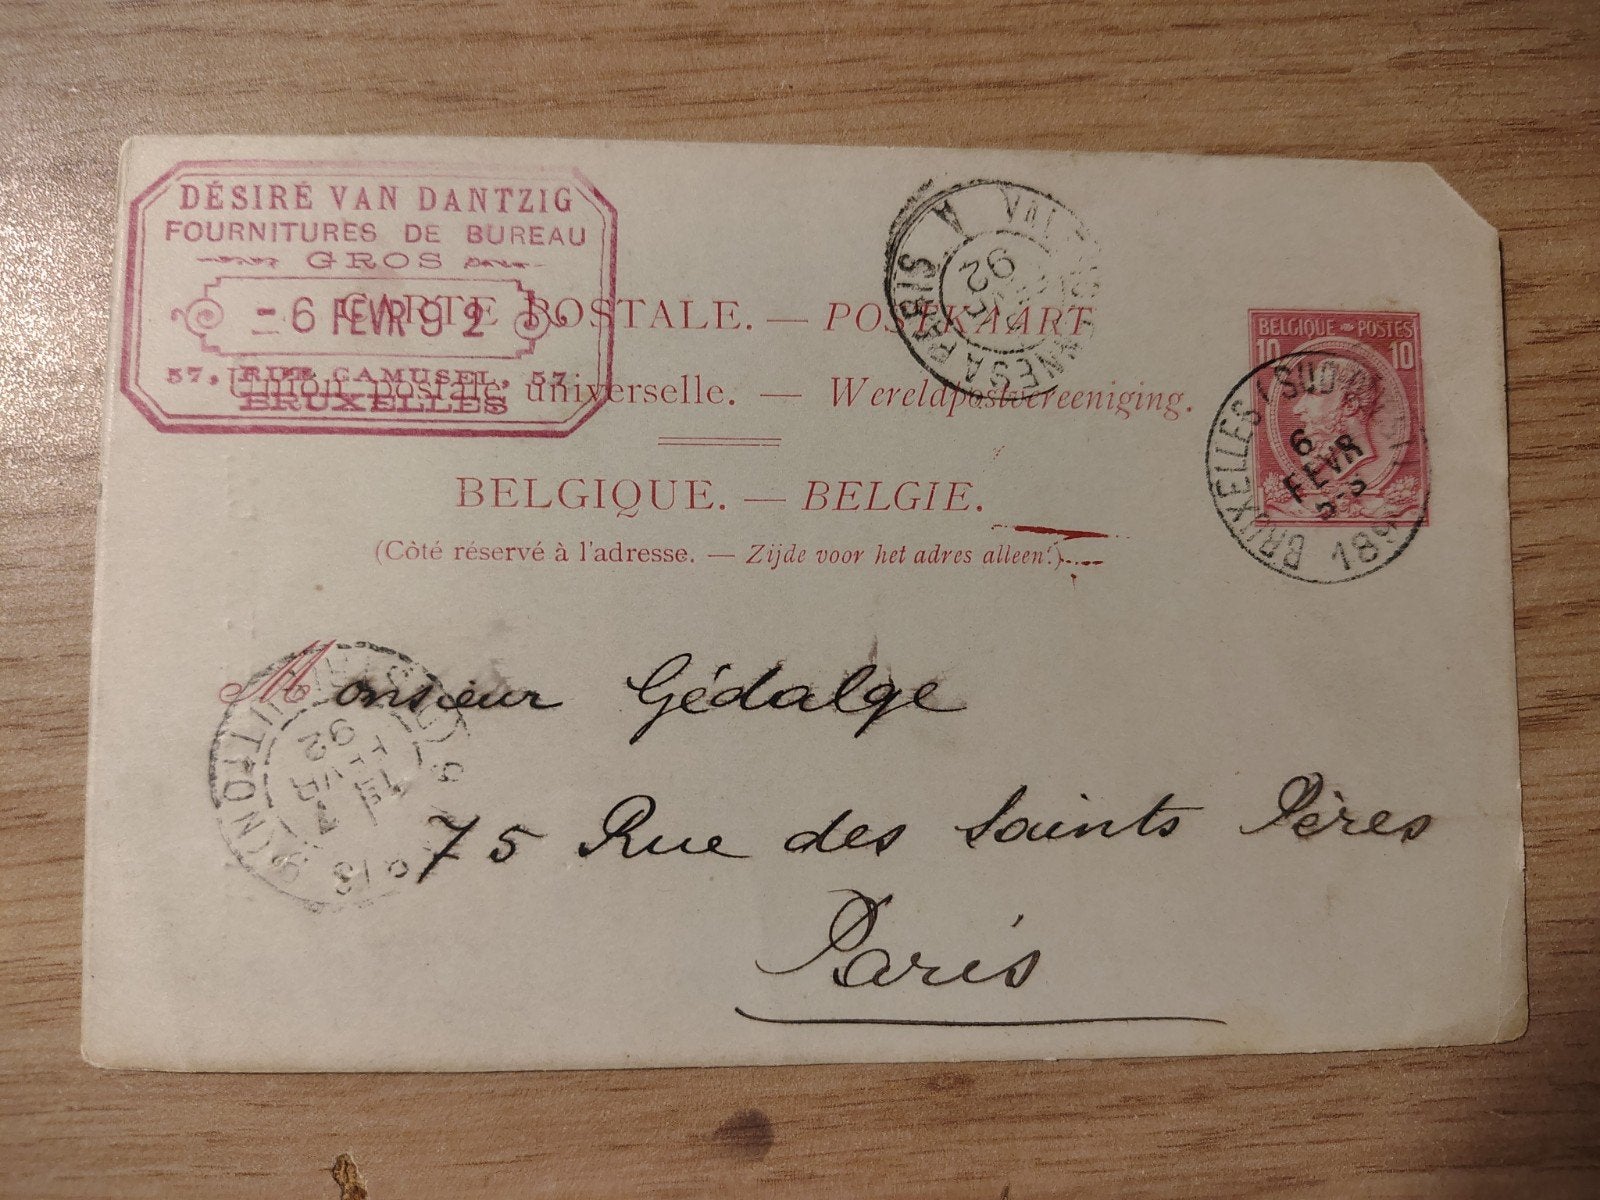 DÉSIRÉ VAN DANTZIG
FOURNITURES DE BUREAU
GROS
-6 FEVR 92
57, RUE CAMUSEL, 57
BRUXELLES
CARTE POSTALE. — POSTKAART
Union postale universelle. — Wereldpostvereeniging.
BELGIQUE. — BELGIE.
(Côté réservé à l'adresse. — Zijde voor het adres alleen.)
BELGIQUE POSTES
10 10
BRUXELLES (SUD
6
FEVR
1892
A PARIS
92
92
Monsieur Gédalge
75 Rue des Saints Pères
Paris